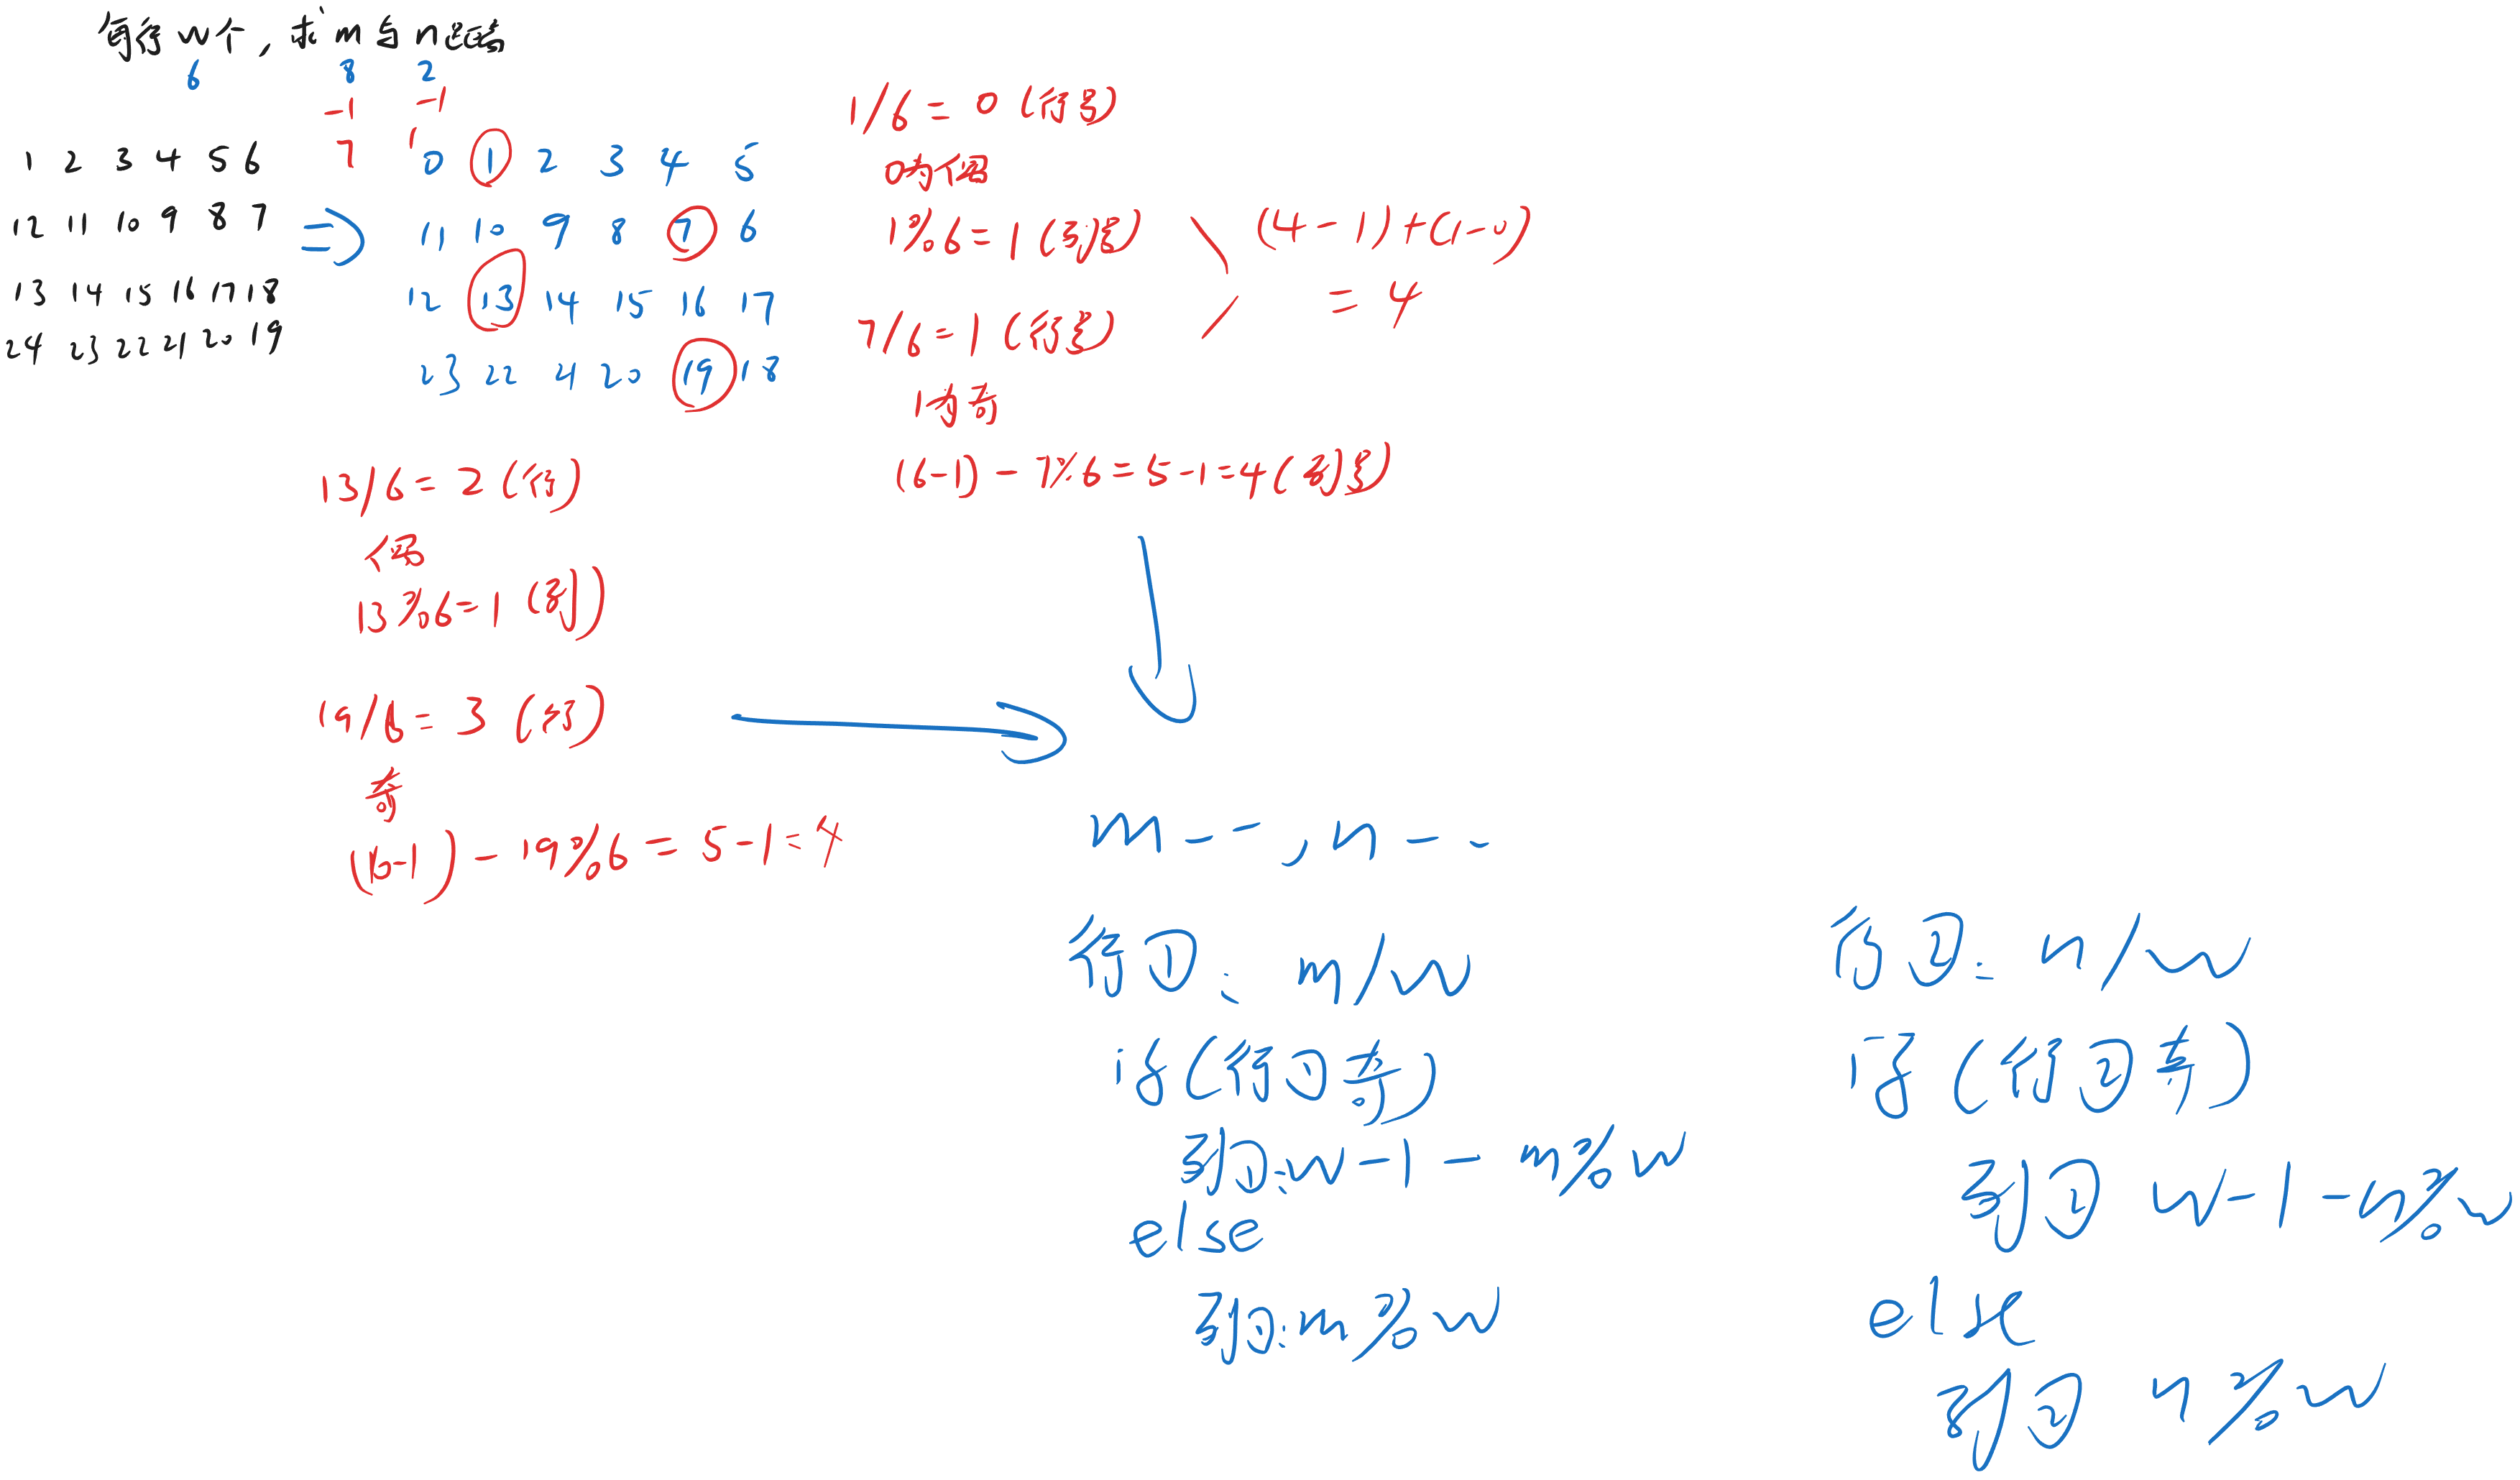 每行 w个, 求 m 与 n 距离
6 8 2
-1 -1
7 1
1 2 3 4 5 6
12 11 10 9 8 7
13 14 15 16 17 18
24 23 22 21 20 19
=>
0 1 2 3 4 5
11 10 9 8 7 6
12 13 14 15 16 17
23 22 21 20 19 18
1/6 = 0 (行号)
0为偶
1%6 = 1 (列号)
7/6 = 1 (行号)
1为奇
(6-1) - 7%6 = 5-1 = 4 (列号)
(4-1) + (1-0)
= 4
13/6 = 2 (行)
偶
13%6 = 1 (列)
19/6 = 3 (行)
奇
(6-1) - 19%6 = 5-1 = 4
m--, n--
行①: m/w
if (行①奇)
列①: w-1-m%w
else
列①: m%w
行②: n/w
if (行②奇)
列② w-1-n%w
else
列② n%w